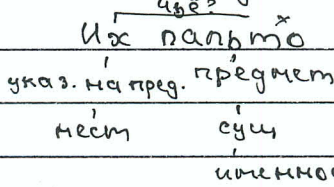 чьё?
Их пальто
указ. на пред. предмет
мест сущ
именно